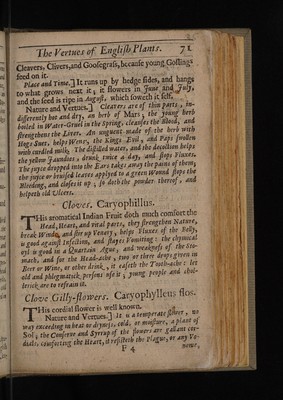 The Vertues of English Plants. 71
Cleavers, Clivers, and Goosegrass, because young Goslings
feed on it.
Place and Time.] It runs up by hedge sides, and hangs
to what grows next it; it flowers in June and July,
and the seed is ripe in August, which soweth it self.
Nature and Vertues.] Cleavers are of thin parts, in-
differently hot and dry, an herb of Mars; the young herb
boiled in Water-Gruel in the Spring, cleanses the Blood, and
strengthens the Liver. An unguent made of the herb with
Hogs Suet, helps Wens, the Kings Evil, and Paps swollen
with curdled milk, The distilled water, and the decoction helps
the yellow Jaundies, drunk twice a day, and stops Fluxes.
The juyce dropped into the Ears takes away the pains of them;
the juyce or bruised leaves applyed to a green Wound stops the
Bleeding, and closes it up; so doth the powder thereof, and
helpeth old Ulcers.
Cloves. Caryophillus.
THis aromatical Indian Fruit doth much comfort the
Head, Heart, and vital parts, they strengthen Nature,
break Winde, and stir up Venery, helps Fluxes of the Belly,
is good against Infection, and stayes Vomiting: the chymical
oyl is good in a Quartain Ague, and weakness of the sto-
mach, and for the Head-ache, two or three drops given in
Beer or Wine, or other drink, it easeth the Tooth-ache: let
old and phlegmatick persons use it, young people and chol-
lerick are to refrain it.
Clove Gilly-flowers. Caryophylleus flos.
THis cordial flower is well known.
Nature and Vertues.] It is a temperate flower, no
way exceeding in heat or dryness, cold, or moisture, a plant of
Sol; the Conserve and Syrrup of the flowers are gallant cor-
dials, comforting the Heart, it resisteth the Plague, or any Ve-
F 4 nome,